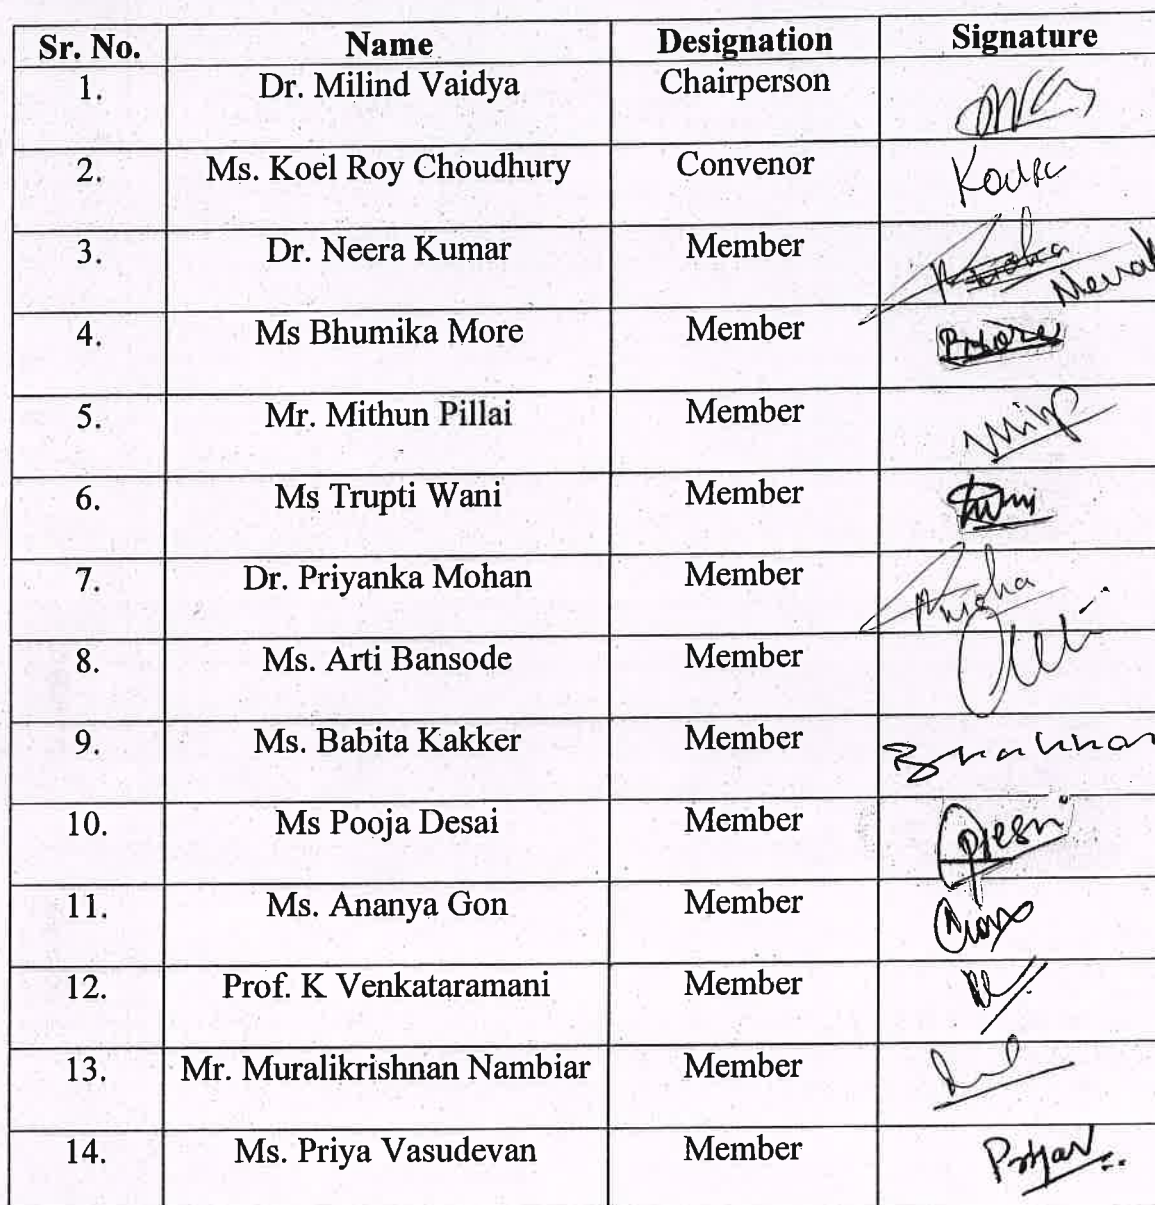 Sr. No. Name Designation Signature
1. Dr. Milind Vaidya Chairperson
2. Ms. Koel Roy Choudhury Convenor
3. Dr. Neera Kumar Member
4. Ms Bhumika More Member
5. Mr. Mithun Pillai Member
6. Ms Trupti Wani Member
7. Dr. Priyanka Mohan Member
8. Ms. Arti Bansode Member
9. Ms. Babita Kakker Member
10. Ms Pooja Desai Member
11. Ms. Ananya Gon Member
12. Prof. K Venkataramani Member
13. Mr. Muralikrishnan Nambiar Member
14. Ms. Priya Vasudevan Member